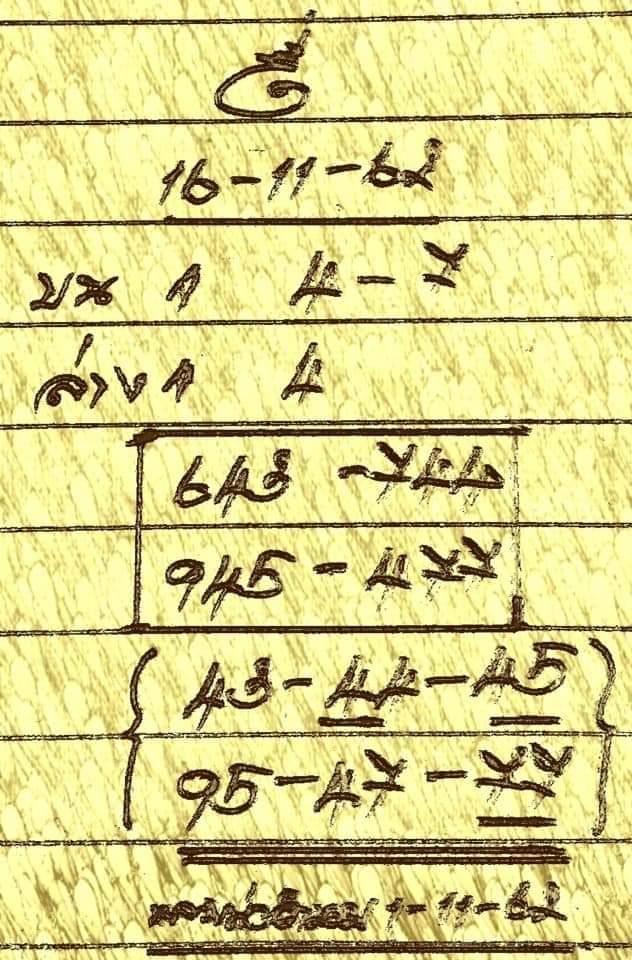 16-11-62
บน 1 4-7
ล่าง 1 4
643 -744
945 - 477
43-44-45
95-47-77
1-11-62